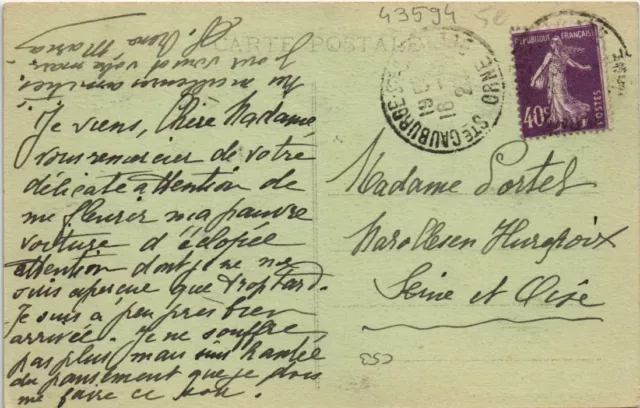 43594
CARTE POSTALE
RÉPUBLIQUE FRANÇAISE
40c
POSTES
STE GAUBURGE-STE
ORNE
16
Je viens, Chère Madame
vous remercier de votre
délicate attention de
me fleurir ma pauvre
voiture d'éclopée
attention dont je ne me
suis aperçue que trop tard.
Je suis à peu près bien
arrivée. Je ne souffre
pas plus mais suis
du pansement que je dois
me faire ce soir.
Madame Portel
Marolles en Hurepoix
Seine et Oise